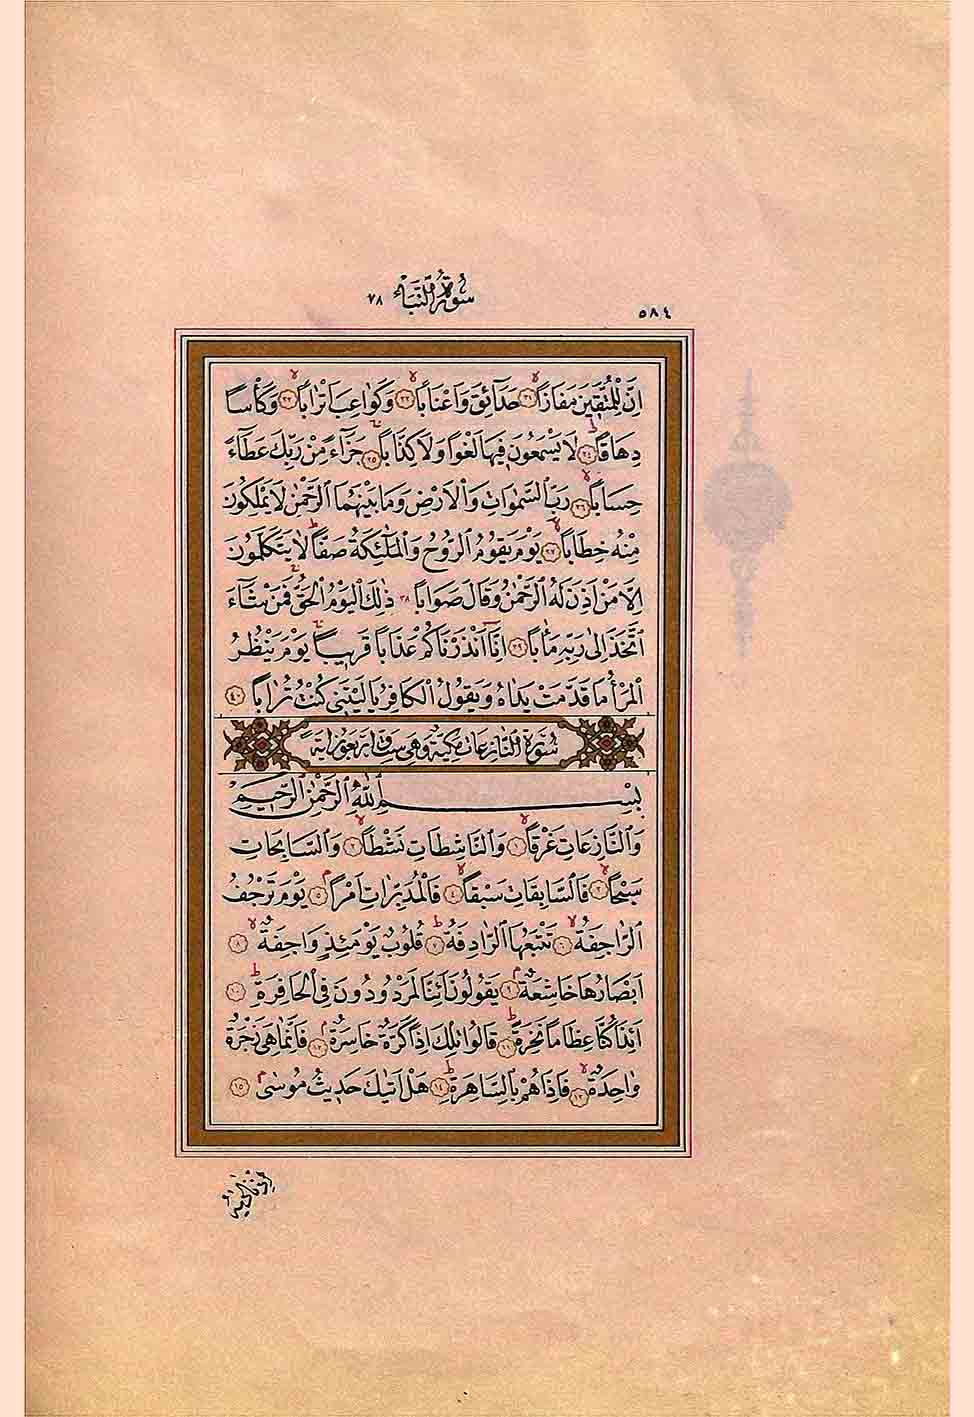 ٥٨٤
سُورَةُ النَّبَاءِ ٧٨
اِنَّ لِلْمُتَّقِينَ مَفَازًاۙ ﴿٣١﴾ حَدَٓائِقَ وَاَعْنَابًاۙ ﴿٣٢﴾ وَكَوَاعِبَ اَتْرَابًاۙ ﴿٣٣﴾ وَكَأْسًا
دِهَاقًاۜ ﴿٣٤﴾ لَا يَسْمَعُونَ فِيهَا لَغْوًا وَلَا كِذَّابًاۚ ﴿٣٥﴾ جَزَٓاءً مِنْ رَبِّكَ عَطَٓاءً
حِسَابًاۙ ﴿٣٦﴾ رَبِّ السَّمٰوَاتِ وَالْاَرْضِ وَمَا بَيْنَهُمَا الرَّحْمٰنِ لَا يَمْلِكُونَ
مِنْهُ خِطَابًاۚ ﴿٣٧﴾ يَوْمَ يَقُومُ الرُّوحُ وَالْمَلٰٓئِكَةُ صَفًّاۜ لَا يَتَكَلَّمُونَ
اِلَّا مَنْ اَذِنَ لَهُ الرَّحْمٰنُ وَقَالَ صَوَابًا ٣٨ ذٰلِكَ الْيَوْمُ الْحَقُّۚ فَمَنْ شَٓاءَ
اتَّخَذَ اِلٰى رَبِّهِ مَاٰبًا ﴿٣٩﴾ اِنَّٓا اَنْذَرْنَاكُمْ عَذَابًا قَرِيبًاۚ يَوْمَ يَنْظُرُ
الْمَرْأُ مَا قَدَّمَتْ يَدَاهُ وَيَقُولُ الْكَافِرُ يَا لَيْتَنِي كُنْتُ تُرَابًا ﴿٤٠﴾
سُورَةُ النَّازِعَاتِ مَكِّيَّةٌ وَهِيَ سِتٌّ وَاَرْبَعُونَ اٰيَةً
بِسْمِ اللّٰهِ الرَّحْمٰنِ الرَّحِيمِ
وَالنَّازِعَاتِ غَرْقًاۙ ﴿١﴾ وَالنَّاشِطَاتِ نَشْطًاۙ ﴿٢﴾ وَالسَّابِحَاتِ
سَبْحًاۙ ﴿٣﴾ فَالسَّابِقَاتِ سَبْقًاۙ ﴿٤﴾ فَالْمُدَبِّرَاتِ اَمْرًاۢ ﴿٥﴾ يَوْمَ تَرْجُفُ
الرَّاجِفَةُۙ ﴿٦﴾ تَتْبَعُهَا الرَّادِفَةُۜ ﴿٧﴾ قُلُوبٌ يَوْمَئِذٍ وَاجِفَةٌۙ ﴿٨﴾
اَبْصَارُهَا خَاشِعَةٌۢ ﴿٩﴾ يَقُولُونَ ءَاِنَّا لَمَرْدُودُونَ فِي الْحَافِرَةِۜ ﴿١٠﴾
ءَاِذَا كُنَّا عِظَامًا نَخِرَةًۜ ﴿١١﴾ قَالُوا تِلْكَ اِذًا كَرَّةٌ خَاسِرَةٌۢ ﴿١٢﴾ فَاِنَّمَا هِيَ زَجْرَةٌ
وَاحِدَةٌۙ ﴿١٣﴾ فَاِذَا هُمْ بِالسَّاهِرَةِۜ ﴿١٤﴾ هَلْ اَتٰيكَ حَدِيثُ مُوسٰىۢ ﴿١٥﴾